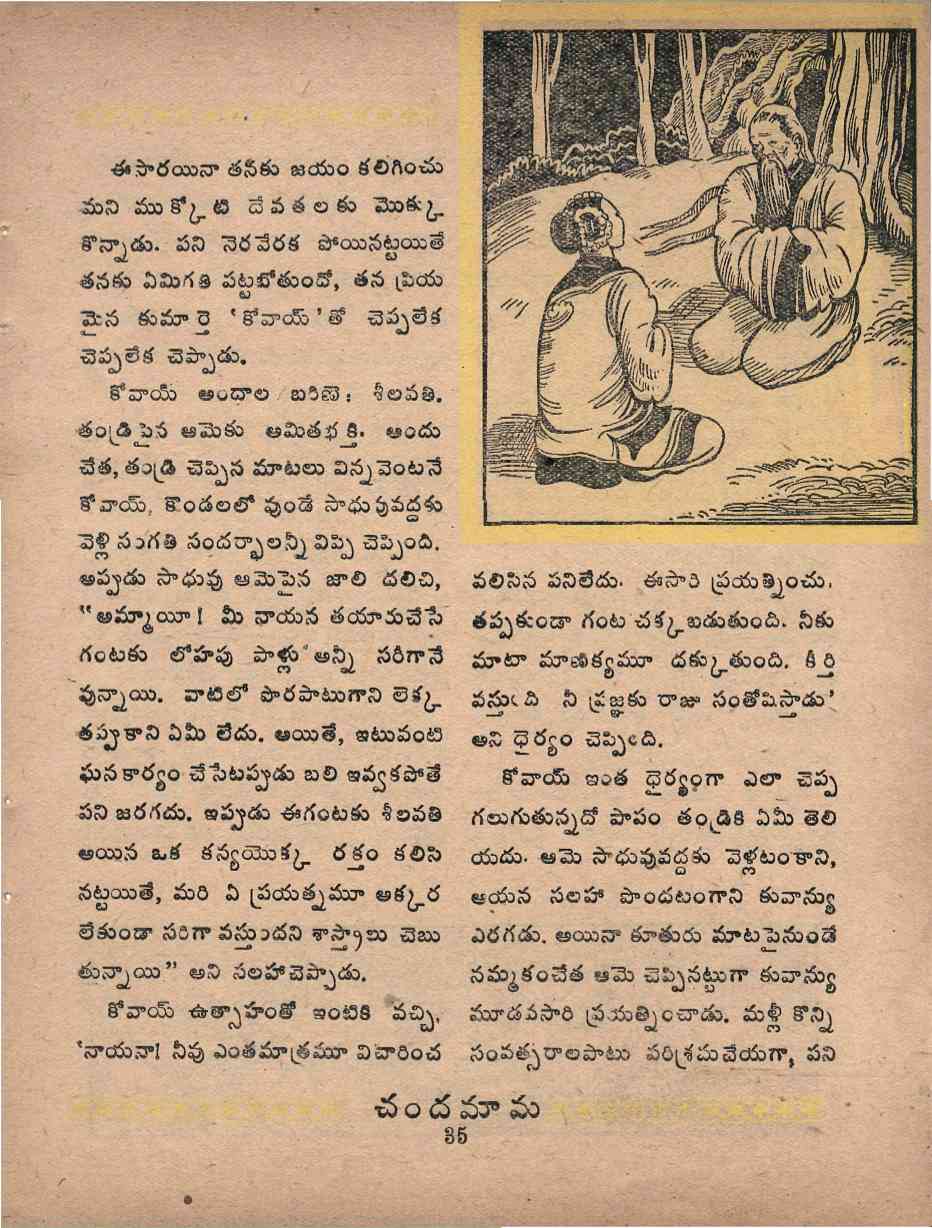 ఈసారయినా తనకు జయం కలిగించు
మని ముక్కోటి దేవతలకు మొక్కు
కొన్నాడు. పని నెరవేరక పోయినట్టయితే
తనకు ఏమిగతి పట్టబోతుందో, తన ప్రియ
మైన కుమార్తె 'కోవాయ్'తో చెప్పలేక
చెప్పలేక చెప్పాడు.
కోవాయ్ అందాల బరిణె; శీలవతి.
తండ్రిపైన ఆమెకు అమితభక్తి. అందు
చేత, తండ్రి చెప్పిన మాటలు విన్నవెంటనే
కోవాయ్, కొండలలో వుండే సాధువువద్దకు
వెళ్లి సంగతి సందర్భాలన్నీ విప్పి చెప్పింది.
అప్పుడు సాధువు ఆమెపైన జాలి దలిచి,
"అమ్మాయీ! మీ నాయన తయారుచేసే
గంటకు లోహపు పాళ్లు అన్నీ సరిగానే
వున్నాయి. వాటిలో పొరపాటుగాని లెక్క
తప్పుకాని ఏమీ లేదు. అయితే, ఇటువంటి
ఘనకార్యం చేసేటప్పుడు బలి ఇవ్వకపోతే
పని జరగదు. ఇప్పుడు ఈగంటకు శీలవతి
అయిన ఒక కన్యయొక్క రక్తం కలిసి
నట్టయితే, మరి ఏ ప్రయత్నమూ అక్కర
లేకుండా సరిగా వస్తుందని శాస్త్రాలు చెబు
తున్నాయి" అని సలహాచెప్పాడు.
కోవాయ్ ఉత్సాహంతో ఇంటికి వచ్చి,
'నాయనా! నీవు ఎంతమాత్రమూ విచారించ
వలిసిన పనిలేదు. ఈసారి ప్రయత్నించు.
తప్పకుండా గంట చక్కబడుతుంది. నీకు
మాటా మాణిక్యమూ దక్కుతుంది. కీర్తి
వస్తుంది నీ ప్రజ్ఞకు రాజు సంతోషిస్తాడు'
అని ధైర్యం చెప్పింది.
కోవాయ్ ఇంత ధైర్యంగా ఎలా చెప్ప
గలుగుతున్నదో పాపం తండ్రికి ఏమీ తెలి
యదు. ఆమె సాధువువద్దకు వెళ్లటంకాని,
ఆయన సలహా పొందటంగాని కువాన్యు
ఎరగడు. అయినా కూతురు మాటపైనుండే
నమ్మకంచేత ఆమె చెప్పినట్టుగా కువాన్యు
మూడవసారి ప్రయత్నించాడు. మళ్లీ కొన్ని
సంవత్సరాలపాటు పరిశ్రమచేయగా, పని
చందమామ
35